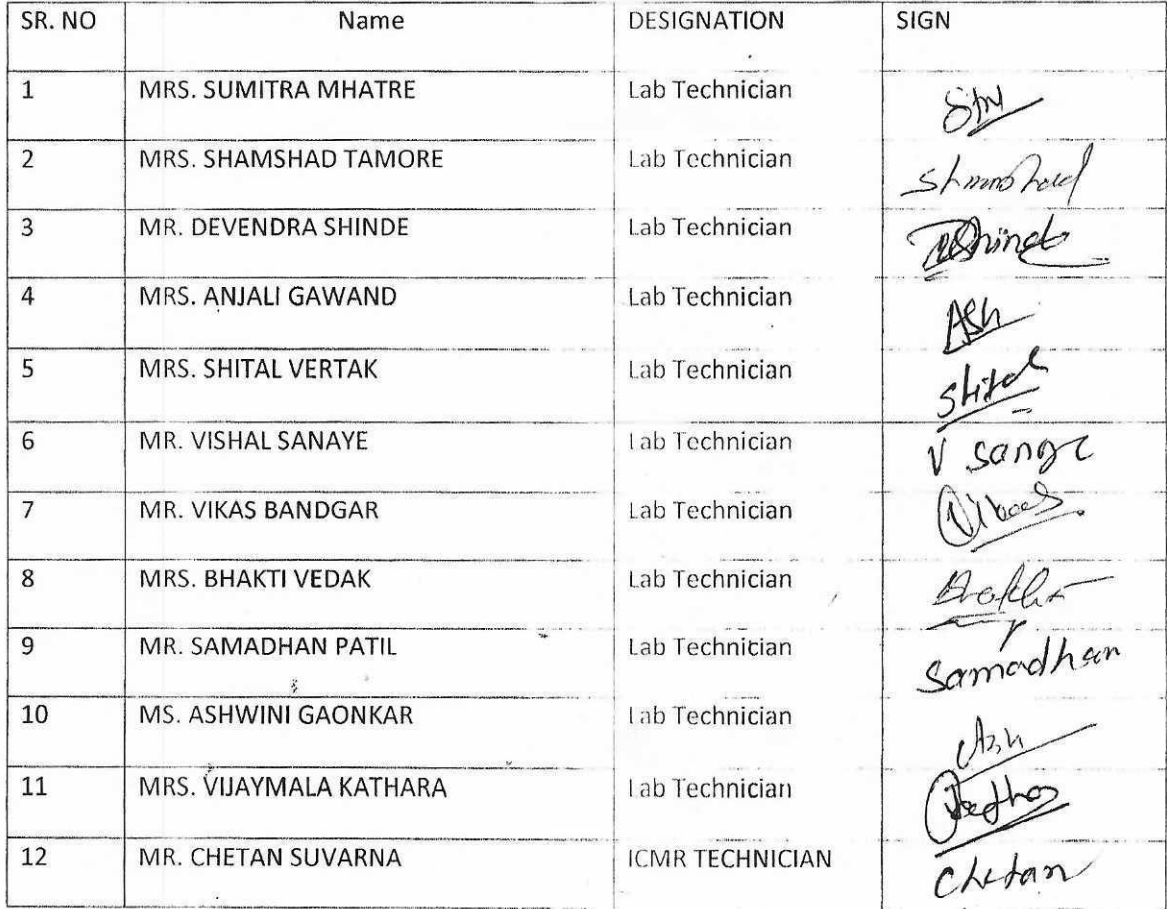 SR. NO Name DESIGNATION SIGN
1 MRS. SUMITRA MHATRE Lab Technician
2 MRS. SHAMSHAD TAMORE Lab Technician Shamshad
3 MR. DEVENDRA SHINDE Lab Technician DShinde
4 MRS. ANJALI GAWAND Lab Technician
5 MRS. SHITAL VERTAK Lab Technician Shital
6 MR. VISHAL SANAYE Lab Technician V
7 MR. VIKAS BANDGAR Lab Technician
8 MRS. BHAKTI VEDAK Lab Technician
9 MR. SAMADHAN PATIL Lab Technician Samadhan
10 MS. ASHWINI GAONKAR Lab Technician
11 MRS. VIJAYMALA KATHARA Lab Technician
12 MR. CHETAN SUVARNA ICMR TECHNICIAN Chetan